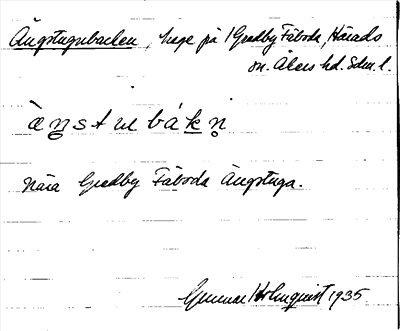 Ängstugubacken, hage på Gredby Fäboda, Härads
sn. Åkers hd. Sdm. l.
ä̀ŋstɯbákn̥
Nära Gredby Fäboda Ängstuga.
Gunnar Holmquist 1935